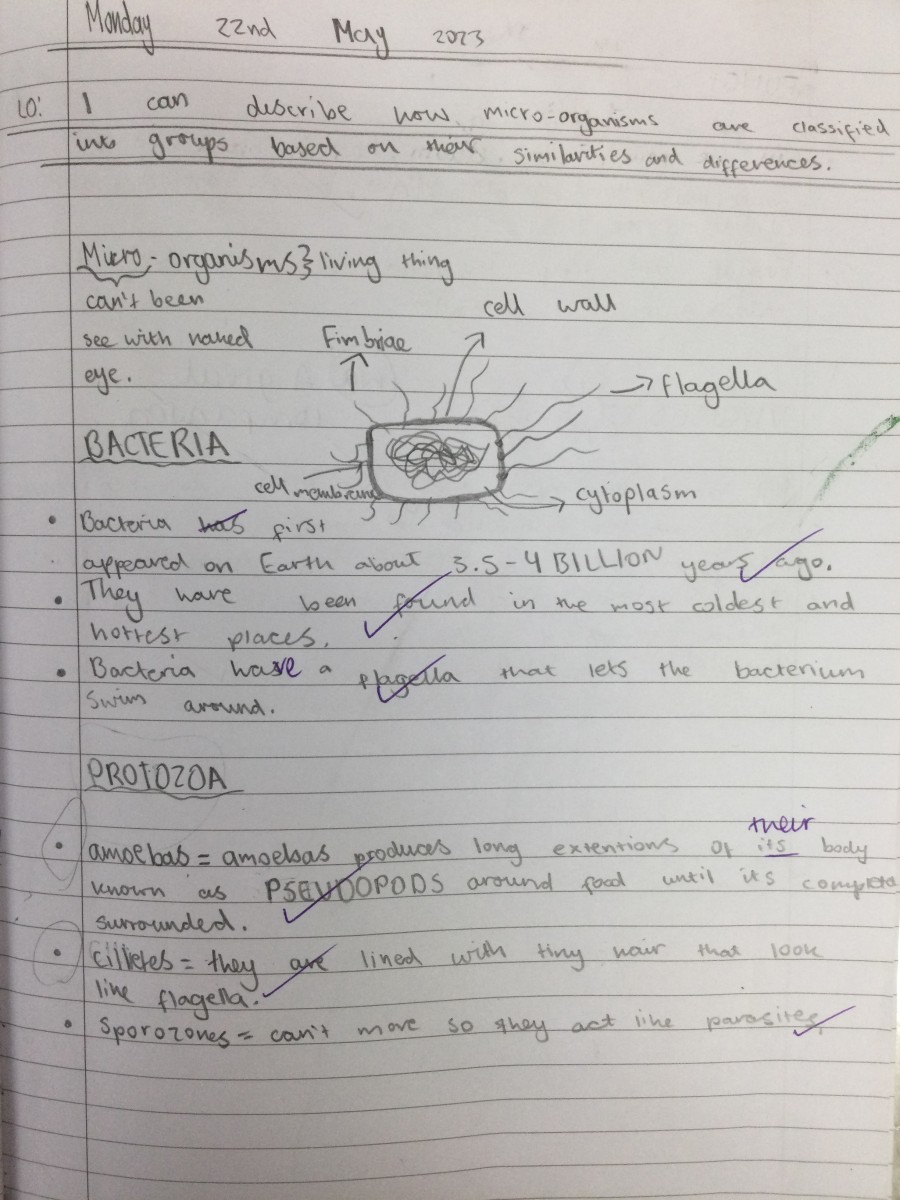 Monday 22nd May 2023
LO: I can describe how micro-organisms are classified
into groups based on their similarities and differences.
Micro-organisms} living thing
can't been
see with naked
eye.
cell wall
Fimbriae
flagella
BACTERIA
cell membrane
cytoplasm
• Bacteria has first
appeared on Earth about 3.5-4 BILLION years ago.
• They have been found in the most coldest and
hottest places.
• Bacteria have a flagella that lets the bacterium
swim around.
PROTOZOA
their
• amoebas = amoebas produces long extentions of its body
known as PSEUDOPODS around food until its complete
surrounded.
• Cilletes = they are lined with tiny hair that look
like flagella.
• Sporozones = can't move so they act like parasites